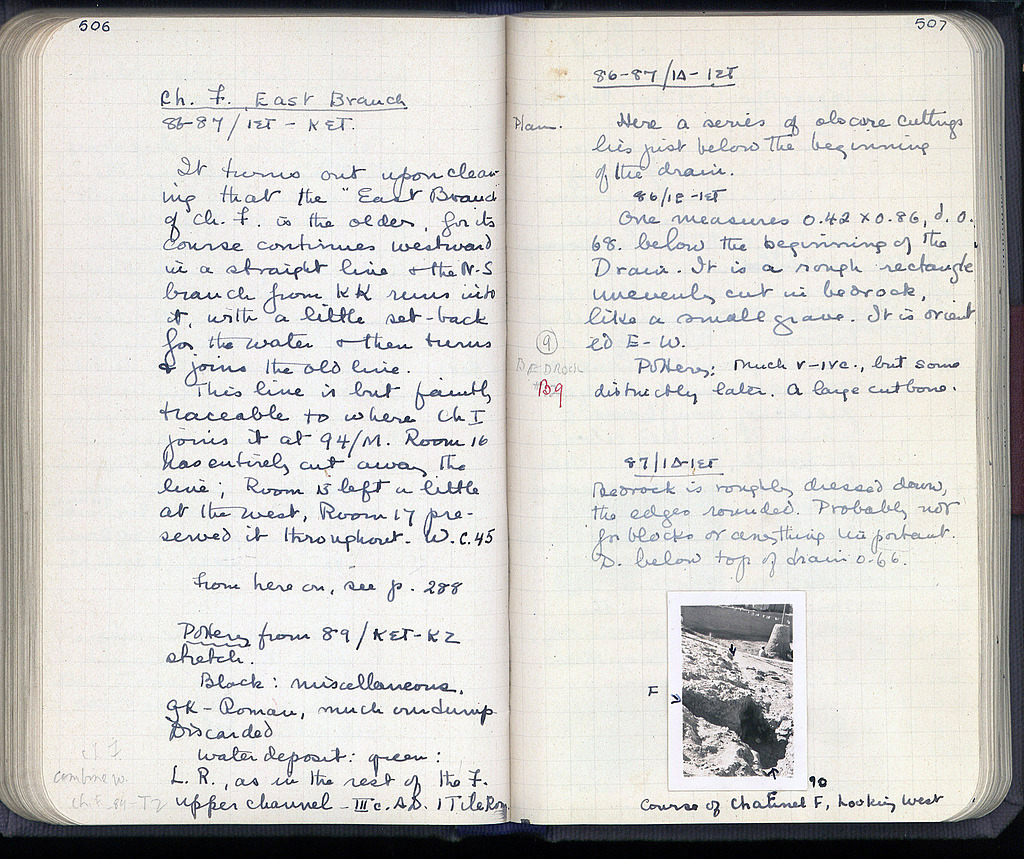 506
Ch. F. East Branch
86-87/IΣT - KΣT.
It turns out upon clean-
ing that the "East Branch
of Ch. F. is the older, for its
course continues westward
in a straight line & the N-S
branch from KK runs into
it, with a little set-back
for the water & then turns
& joins the old line.
This line is but faintly
traceable to where Ch I
joins it at 94/M. Room 16
has entirely cut away the
line; Room 13 left a little
at the west, Room 17 pre-
served it throughout. W. C. 45
From here on, see p. 288
Pottery from 89/KΣT-KZ
stretch.
Black: miscellaneous.
GK-Roman, much on dump
Discarded
Water deposit: green:
L. R., as in the rest of the F.
upper channel - IIIc. A.D. 1 Tile
Ch I
combine w.
Ch. F. 84-
507
86-87/IΔ-IΣT
Plan.
Here a series of obscure cuttings
lies just below the beginning
of the drain.
86/IE-IΣT
One measures 0.42 x 0.86, d. 0.
68. below the beginning of the
Drain. It is a rough rectangle
unevenly cut in bedrock,
like a small grave. It is orient
ed E-W.
9
BEDROCK
B9
Pottery: Much V-IVc., but some
distinctly later. A large cut bone.
87/IΔ-IΣT
Bedrock is roughly dressed down,
the edges rounded. Probably not
for blocks or anything important.
D. below top of drain 0.66.
F
F
90
Course of Channel F, Looking West